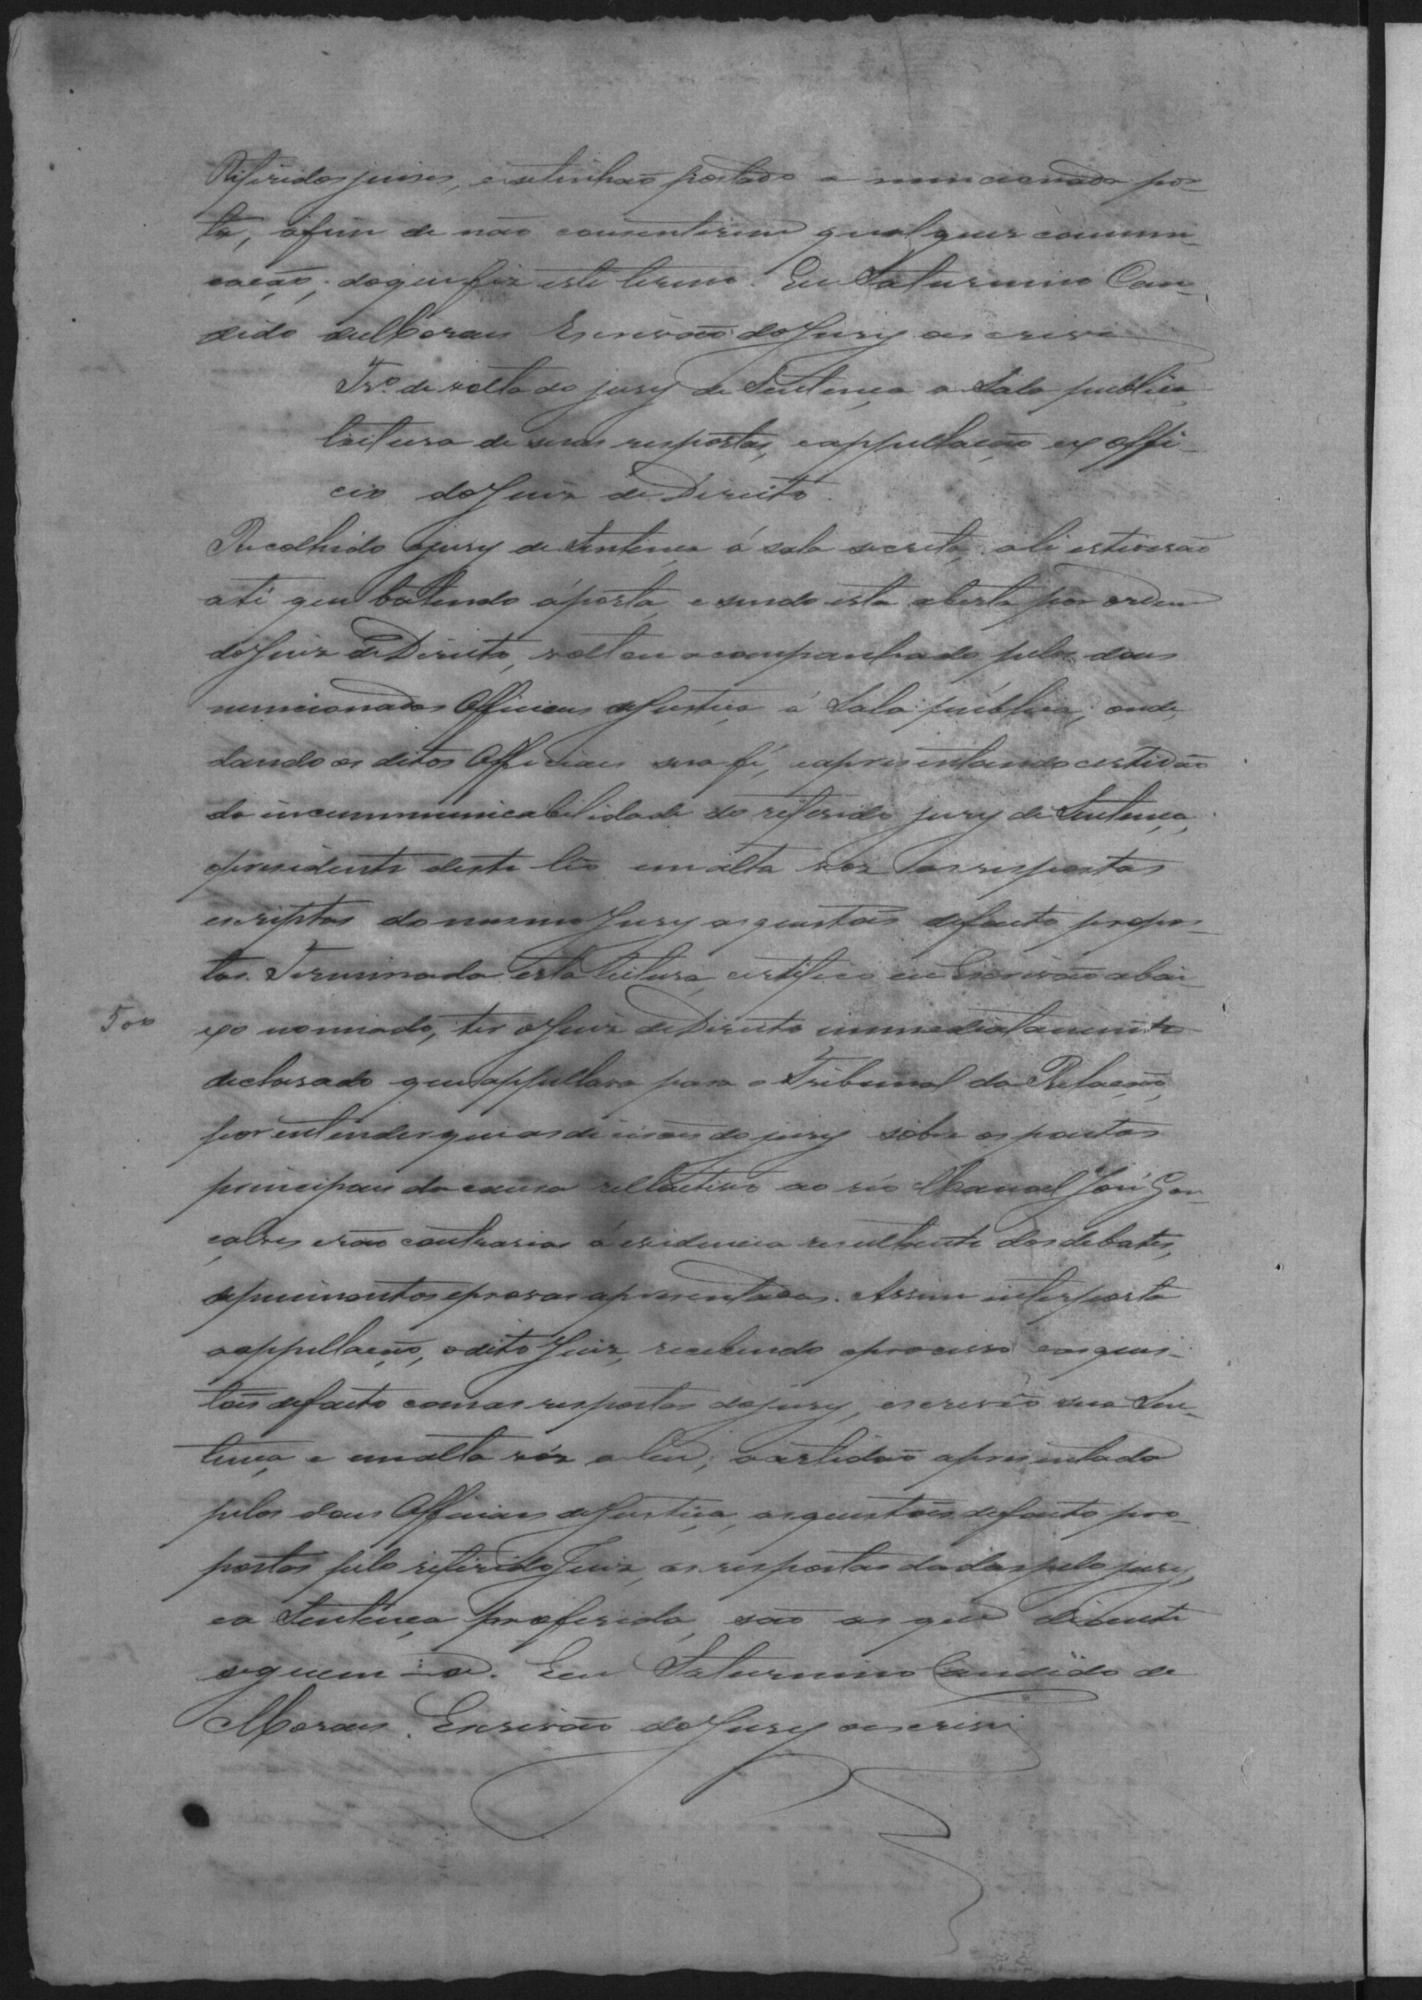 Referidos juises, e se tinhão postado a mencionada por-
ta, afim de não consentirem qualquer communi-
cação; do que fiz este termo. Eu Saturnino Can-
dido de Moraes Escrivão do Jury o escrevi
Tr.º de volta do jury de Sentença a Sala publica,
leitura de suas respostas, e appellação ex offi-
cio do Juiz de Direito.
Recolhido o jury de Sentença á sala secreta, ali estiverão
até que batendo á porta, e sendo esta aberta por ordem
do Juiz de Direito, voltou acompanhado pelos dous
mencionados Officiaes de Justiça á Sala publica; onde,
dando os ditos Officiaes sua fé, e apresentando certidão
da incommunicabilidade do referido jury de Sentença,
o presidente deste leo em alta voz as respostas
escriptas do mesmo Jury as questões de facto propos-
tas. Terminada esta leitura, certifico eu Escrivão abai-
500
xo nomiado, ter o Juiz de Direito immediatamente
declarado que appellava para o Tribunal da Relação,
por entender que as decisões do jury sobre os pontos
principaes da causa rellativos ao réo Manoel José Gon-
çalves erão contrarias á evidencia resultante dos debates,
depuimentos e provas apresentadas. Assim interposta
a appellação, o dito Juiz, recebendo o processo e as ques-
tões de facto com as respostas do jury, escreveo sua Sen-
tença e em alta vóz a leu; a certidão apresentada
pelos dous Officiaes de Justiça, as questões de facto pro-
postas pelo referido Juiz, as respostas dadas pelo jury,
e a Sentença proferida, são as que diante
seguem-se. Eu Saturnino Candido de
Moraes Escrivão do Jury o escrevi